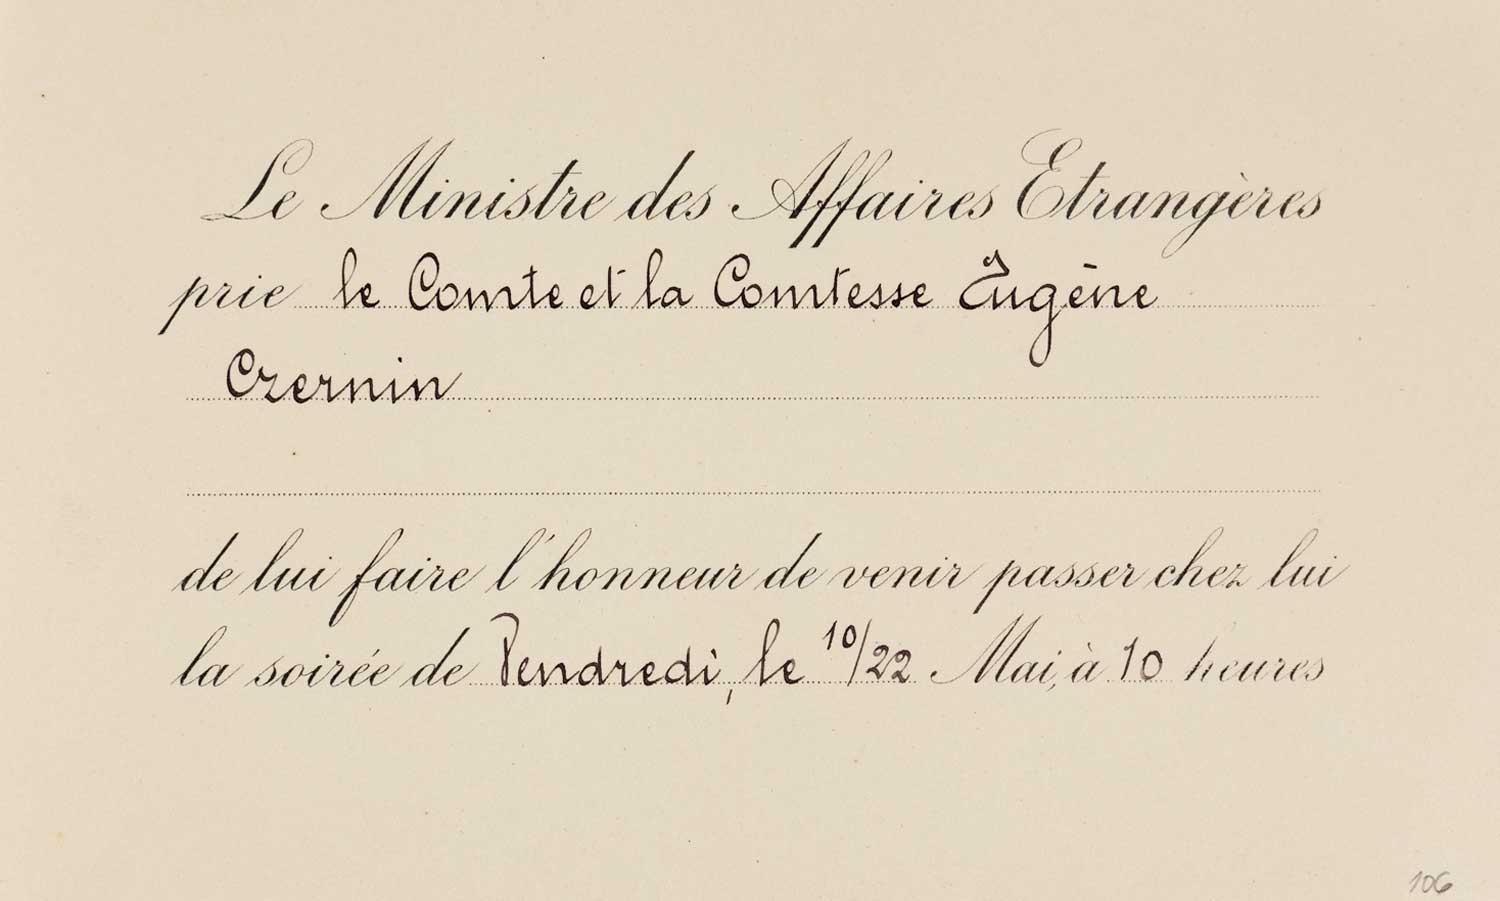 Le Ministre des Affaires Etrangères
prie le Comte et la Comtesse Eugène
Czernin
de lui faire l'honneur de venir passer chez lui
la soirée de Vendredi, le 10/22 Mai, à 10 heures
106